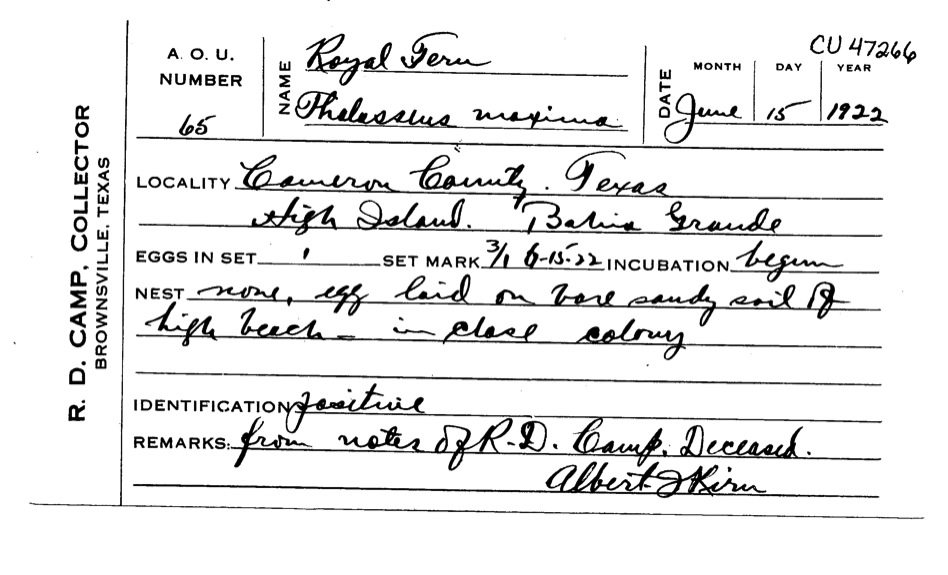 CU 47266
A. O. U. NUMBER 65
NAME Royal Tern
Thalasseus maxima
DATE MONTH DAY YEAR
June 15 1922
R. D. CAMP, COLLECTOR
BROWNSVILLE, TEXAS
LOCALITY Cameron County. Texas
High Island. Bahia Grande
EGGS IN SET 1 SET MARK 3/1 6-15-22 INCUBATION begun
NEST none, egg laid on bare sandy soil of
high beach – in close colony
IDENTIFICATION positive
REMARKS: from notes of R. D. Camp. Deceased.
Albert J Kirn